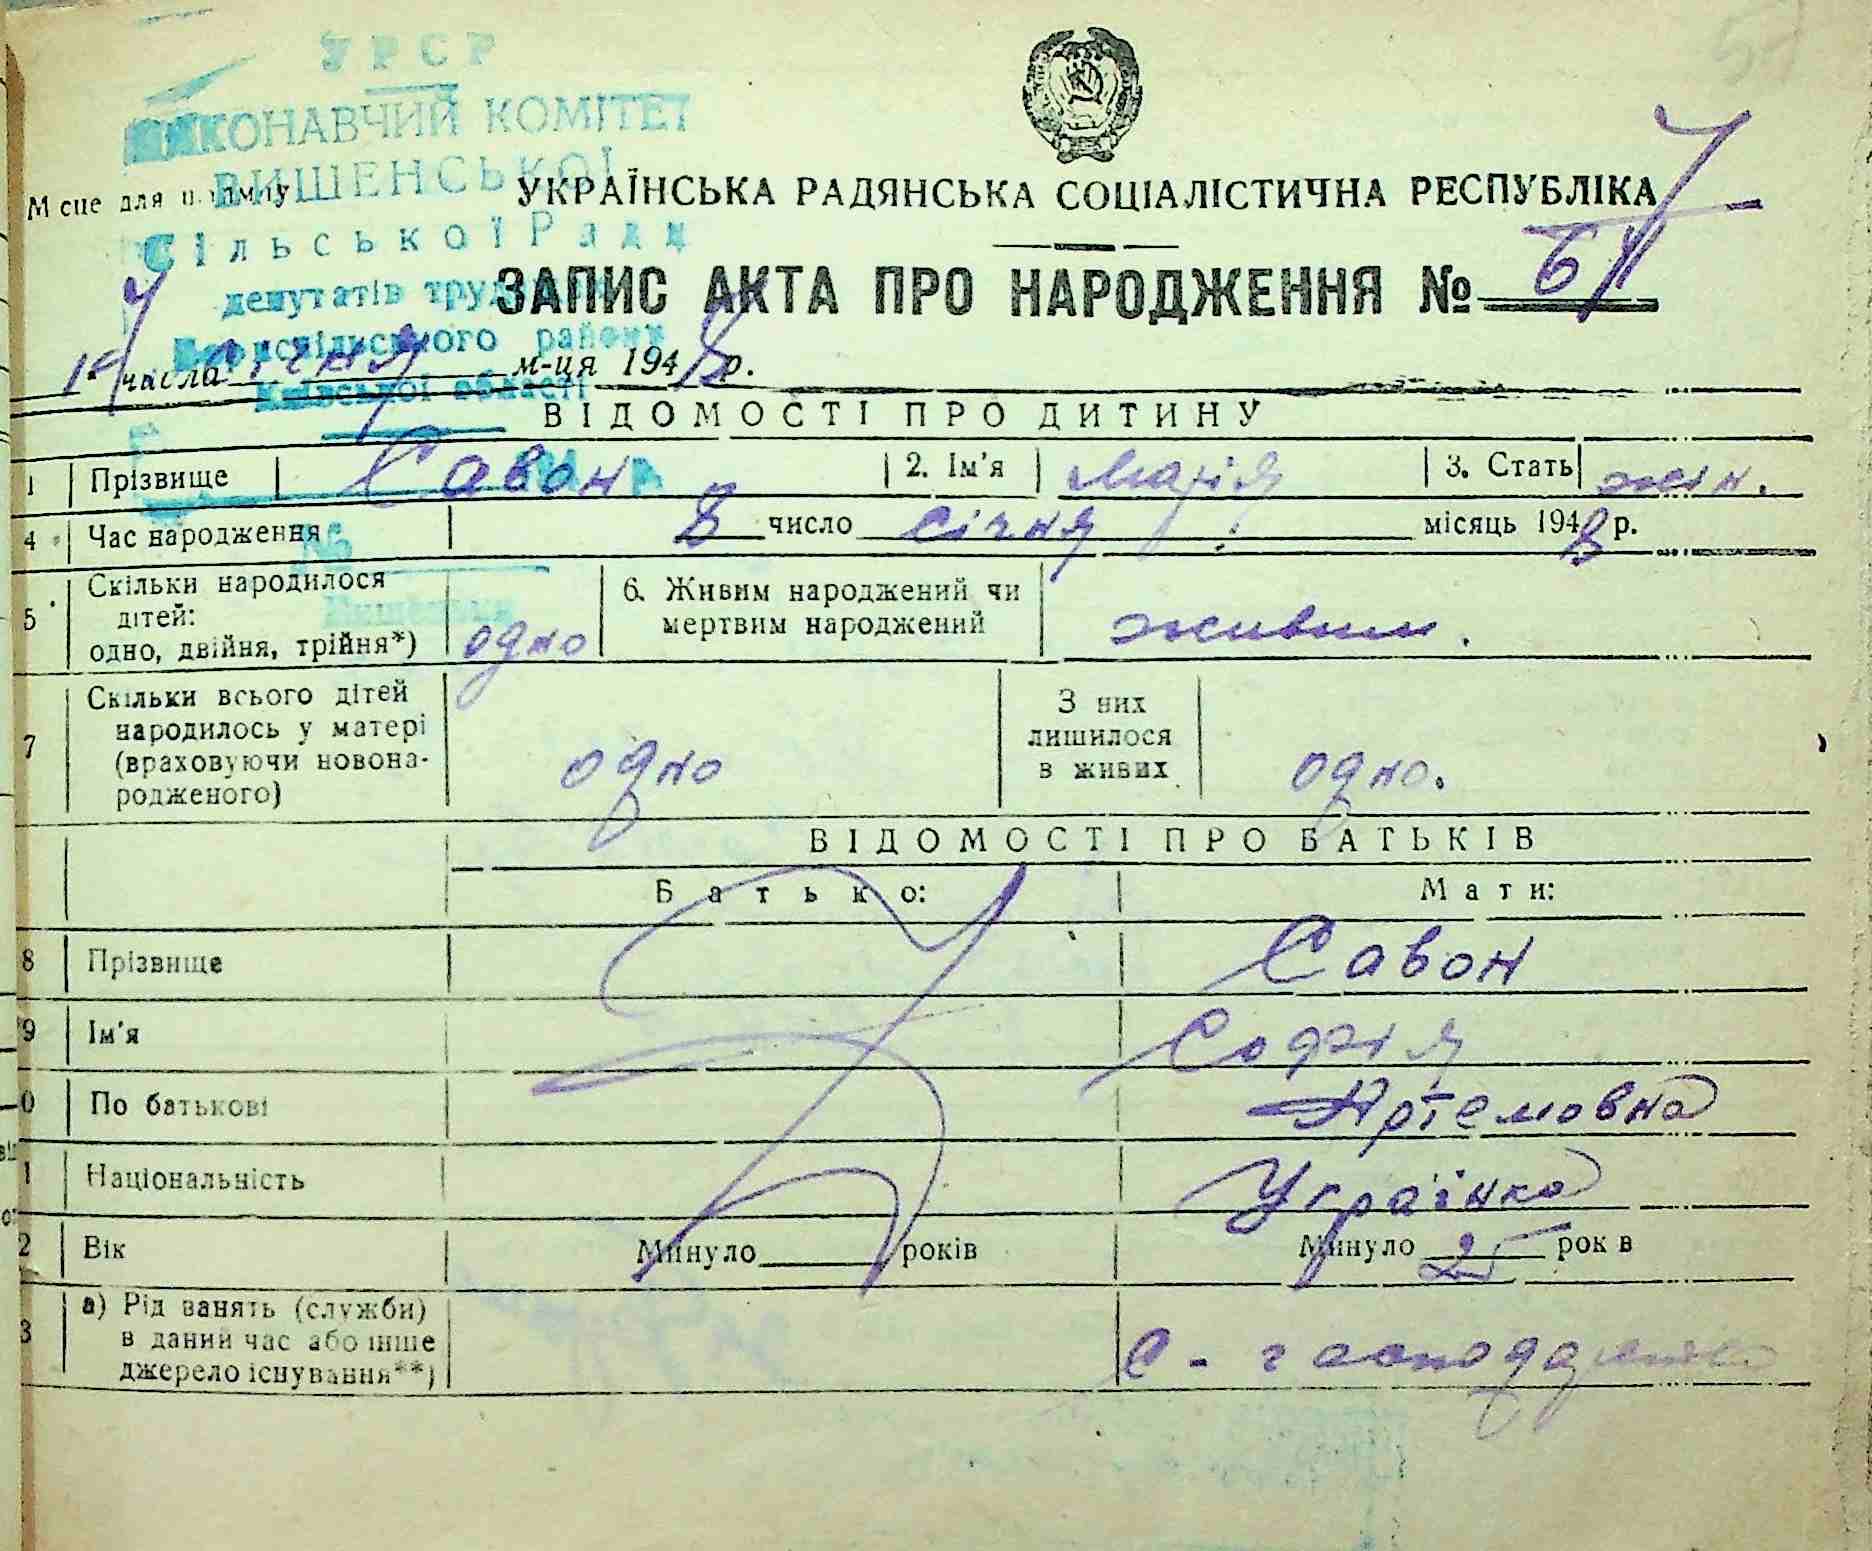 УРСР
ВИКОНАВЧИЙ КОМІТЕТ
ВИШЕНСЬКОЇ
Сільської Ради
депутатів
Бориспільського району
Київської області
№
М сце для штампу
УКРАЇНСЬКА РАДЯНСЬКА СОЦІАЛІСТИЧНА РЕСПУБЛІКА
ЗАПИС АКТА ПРО НАРОДЖЕННЯ №
14 числа січня м-ця 1948 р.
ВІДОМОСТІ ПРО ДИТИНУ
1 Прізвище Савон 2. Ім'я Марія 3. Стать жін.
4 Час народження 8 число січня місяць 1948 р.
5 Скільки народилося дітей: одно, двійня, трійня*) одно 6. Живим народжений чи мертвим народжений живим.
7 Скільки всього дітей народилось у матері (враховуючи новонародженого) одно З них лишилося в живих одно.
ВІДОМОСТІ ПРО БАТЬКІВ
Батько: Мати:
8 Прізвище Савон
9 Ім'я Софія
0 По батькові Артемовна
1 Національність Українка
2 Вік Минуло роківМинуло 25 рок в
3 а) Рід занять (служби) в даний час або інше джерело існування**)